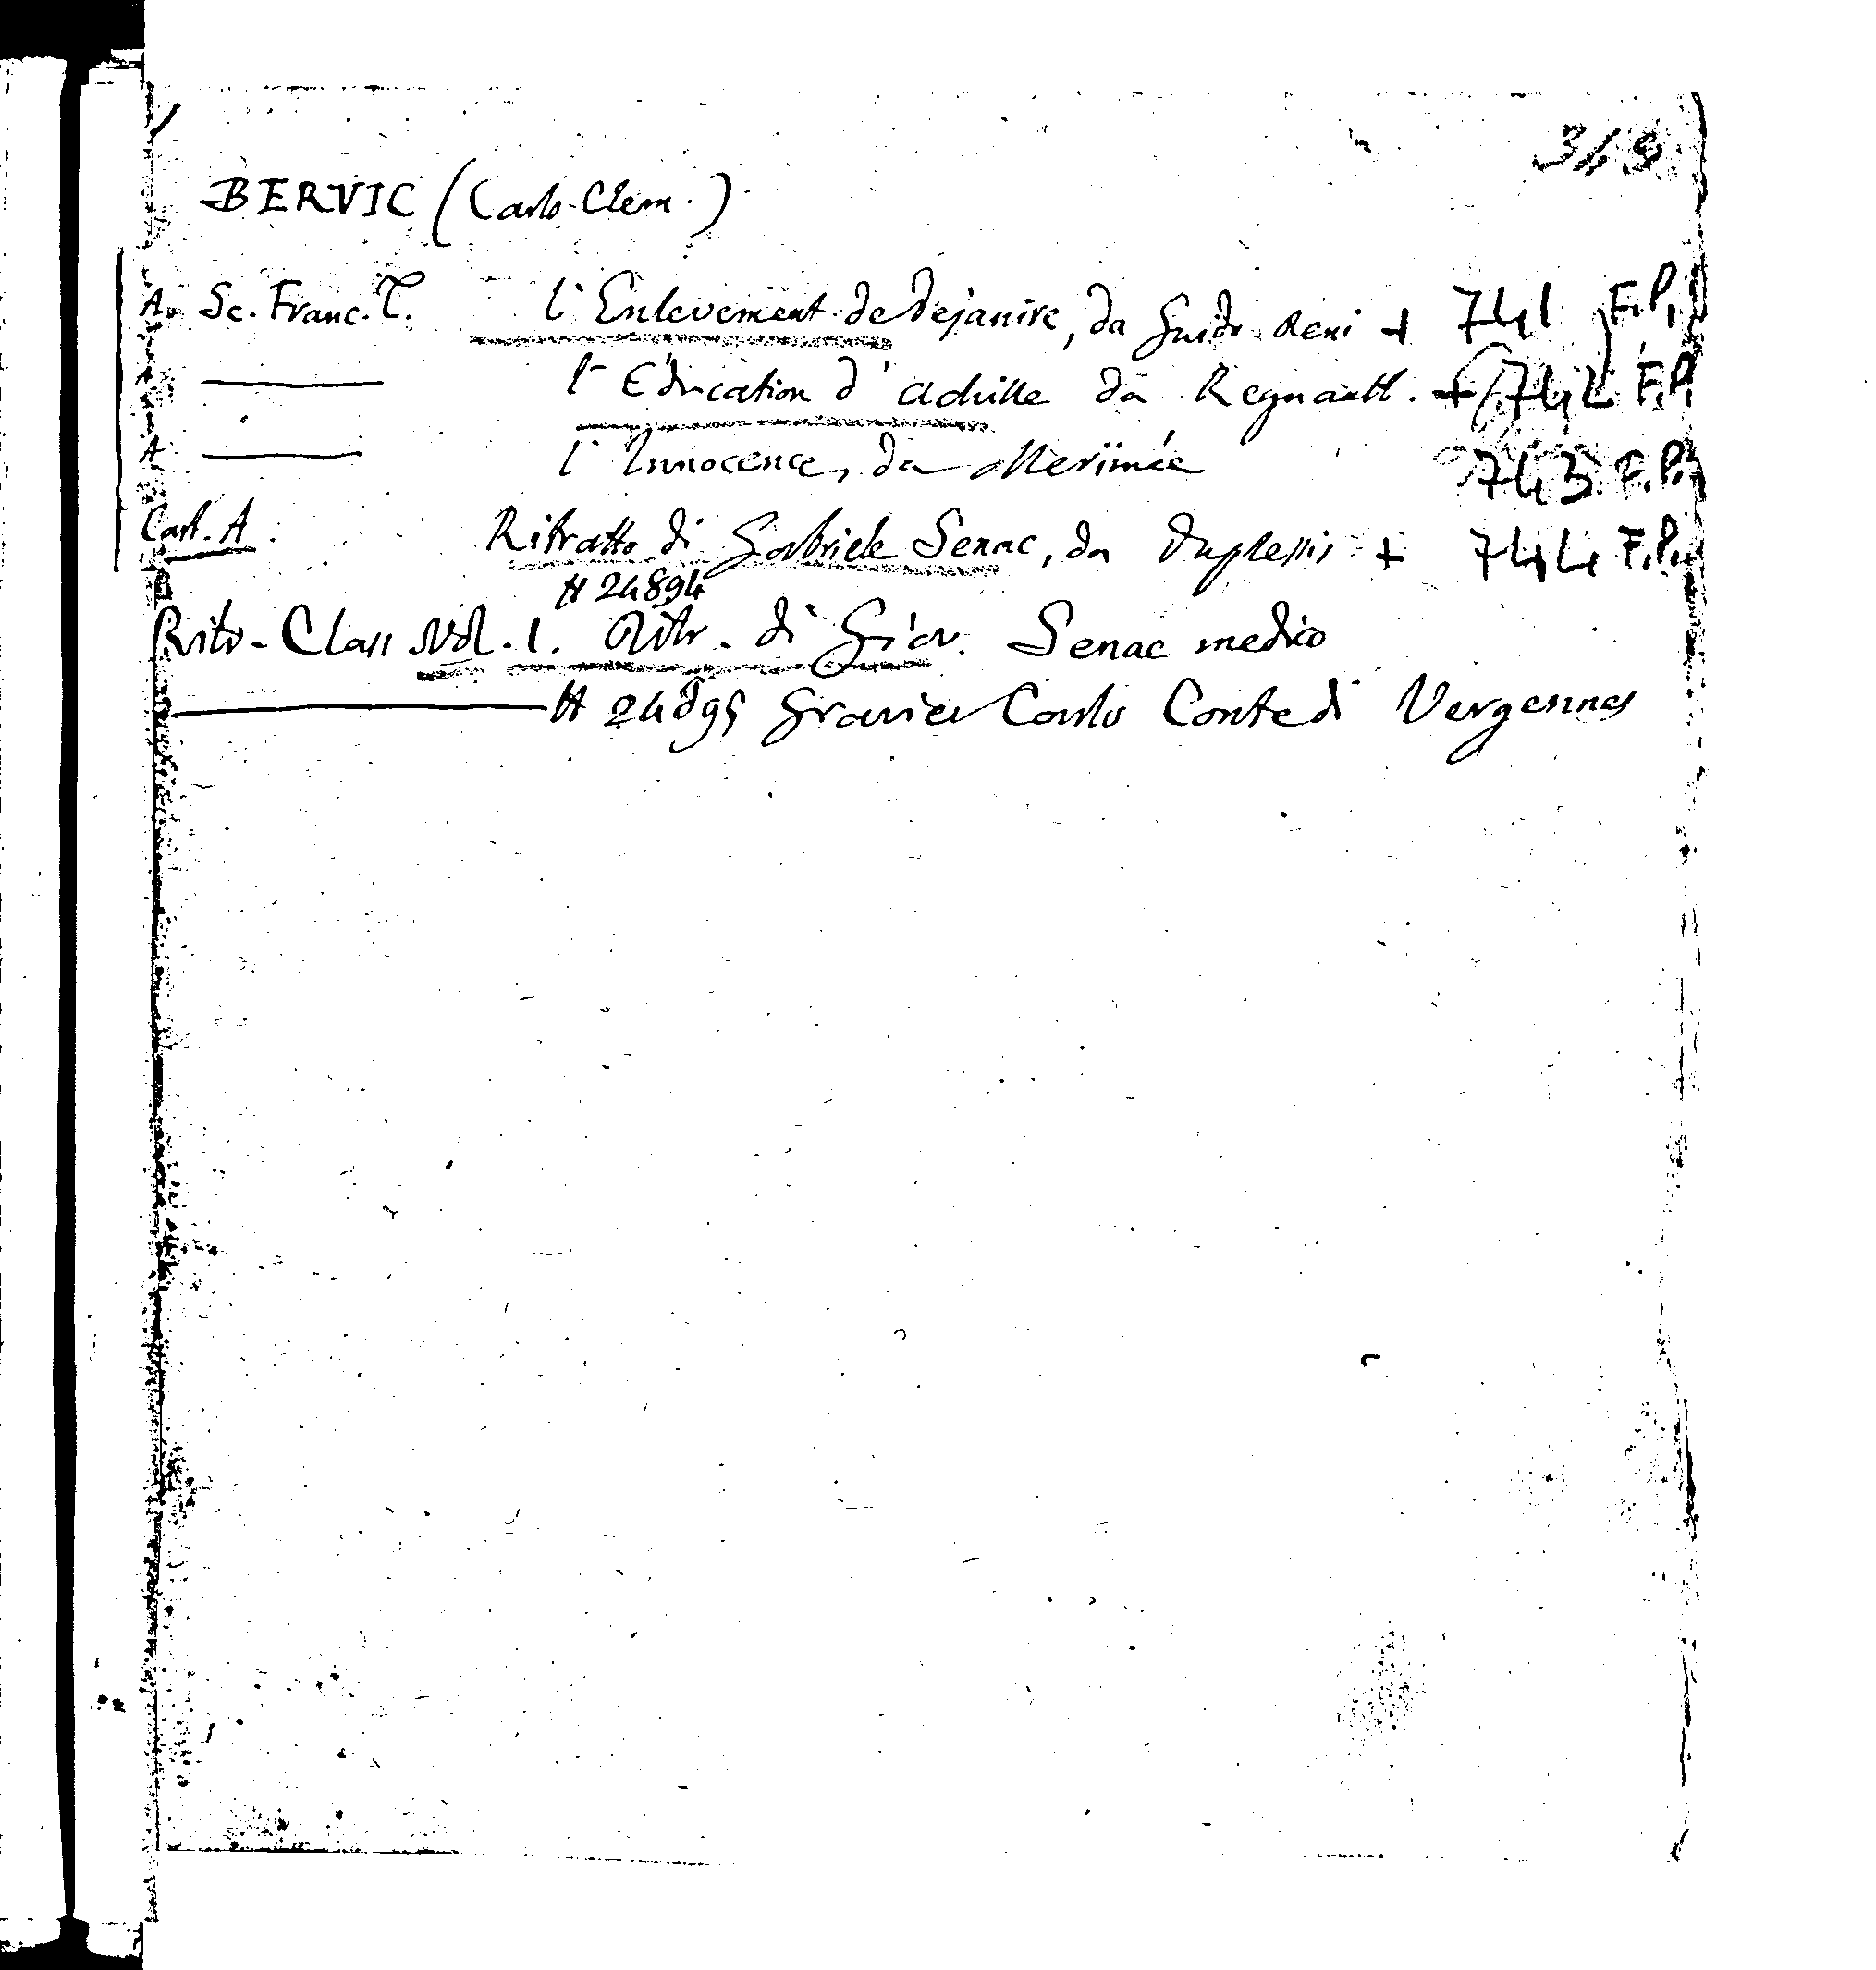 348
BERVIC (Carlo-Clem.)
A. Sc. Franc. T. l'Enlevement de Dejanire, da Guido Reni + 741 F.P.
A ——— l'Education d'Achille da Regnault. + 742 F.P.
A ——— l'Innocence, da Merimée 743 F.P.
Cart. A. Ritratto di Gabriele Senac, da Duplessis + 744 F.P.
# 24894
Ritr. Class. Vol. 1. Ritr. di Giov. Senac medico
——— # 24895 Gravier Carlo Conte di Vergennes